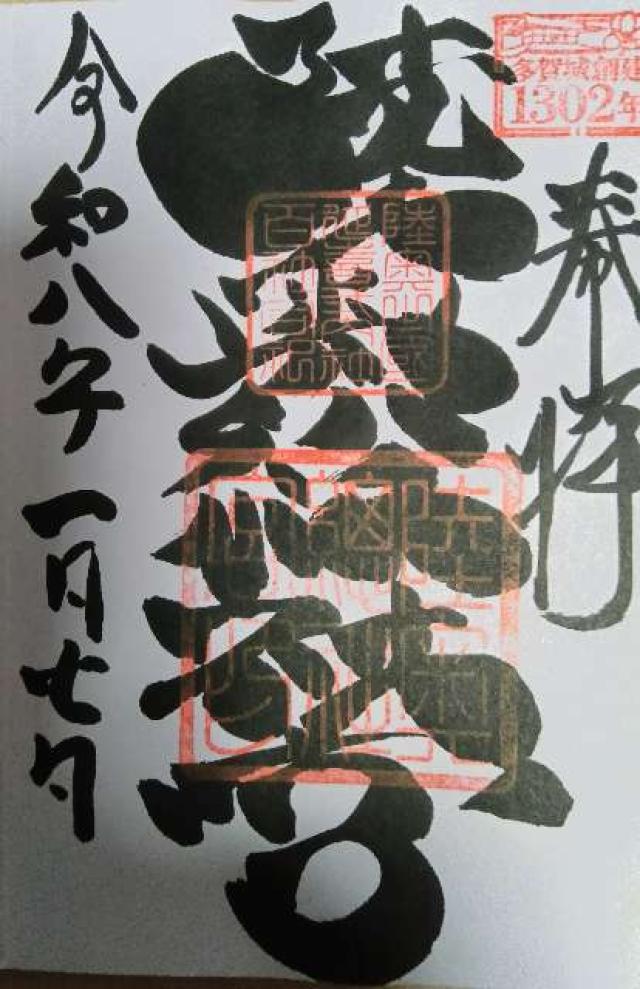 多賀城創建
1302年
奉拝
陸奥総社宮
陸奥國
令和八年一月七日